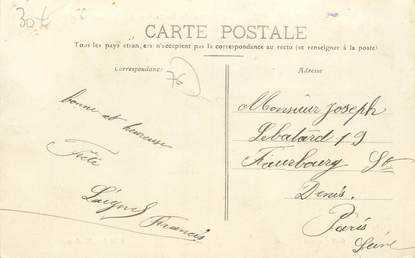 30 f
CARTE POSTALE
Tous les pays étrangers n'acceptent pas la correspondance au recto (se renseigner à la poste)
Correspondance
Adresse
bonne et heureuse
Fête
Francis
Monsieur Joseph
Lebatard 19
Faurbourg St
Denis.
Paris
Seine